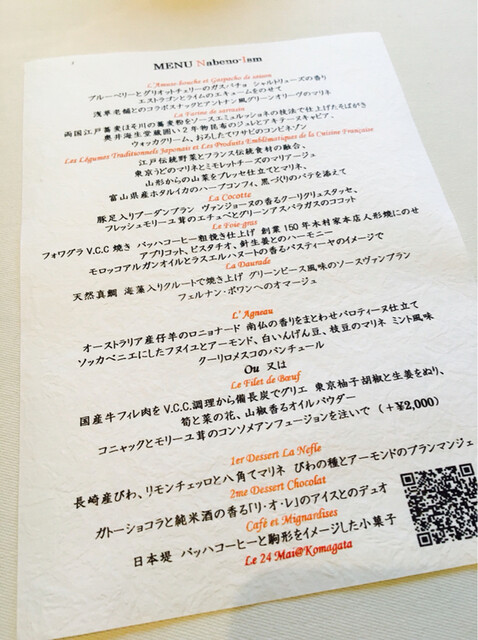 MENU Nabeno-Ism
L'Amuse-bouche et Gaspacho de saison
ブルーベリーとグリオットチェリーのガスパチョ シャルトリューズの香り
エストラゴンとライムのエキュームをのせて
浅草老舗とのコラボスナックとアントナン風グリーンオリーヴのマリネ
La Farine de sarrasin
両国江戸蕎麦ほそ川の蕎麦粉をソースエミュルッショネの技法で仕上げたそばがき
奥井海生堂蔵囲い2年物昆布のジュレとアキテーヌキャビア、
ウォッカクリーム、おろしたてワサビのコンビネゾン
Les Légumes Traditionnels Japonais et Les Produits Emblématiques de la Cuisine Française
江戸伝統野菜とフランス伝統食材の融合、
東京うどのマリネとミモレットチーズのマリアージュ
山形からの山菜をブレッセ仕立てとマリネ、
富山県産ホタルイカのハーブコンフィ、黒づくりのパテを添えて
La Cocotte
豚足入りブーダンブラン ヴァンジョーヌの香るクーリクリュスタッセ、
フレッシュモリーユ茸のエチュベとグリーンアスパラガスのココット
Le Foie-gras
フォワグラ V.C.C 焼き バッハコーヒー粗挽き仕上げ 創業150年木村家本店人形焼にのせ
アプリコット、ピスタチオ、針生姜とのハーモニー
モロッコアルガンオイルとラスエルハヌートの香るパスティーヤのイメージで
La Daurade
天然真鯛 海藻入りクルートで焼き上げ グリーンピース風味のソースヴァンブラン
フェルナン・ポワンへのオマージュ
L'Agneau
オーストラリア産仔羊のロニョナード 南仏の香りをまとわせバロティーヌ仕立て
ソッカベニエにしたフヌイユとアーモンド、白いんげん豆、枝豆のマリネ ミント風味
クーリロメスコのパンチュール
Ou 又は
Le Filet de Bœuf
国産牛フィレ肉をV.C.C.調理から備長炭でグリエ 東京柚子胡椒と生姜をぬり、
筍と菜の花、山椒香るオイルパウダー
コニャックとモリーユ茸のコンソメアンフュージョンを注いで (+¥2,000)
1er Dessert La Nefle
長崎産びわ、リモンチェッロと八角てマリネ びわの種とアーモンドのブランマンジェ
2me Dessert Chocolat
ガトーショコラと純米酒の香る「リ・オ・レ」のアイスとのデュオ
Café et Mignardises
日本堤 バッハコーヒーと駒形をイメージした小菓子
Le 24 Mai@Komagata